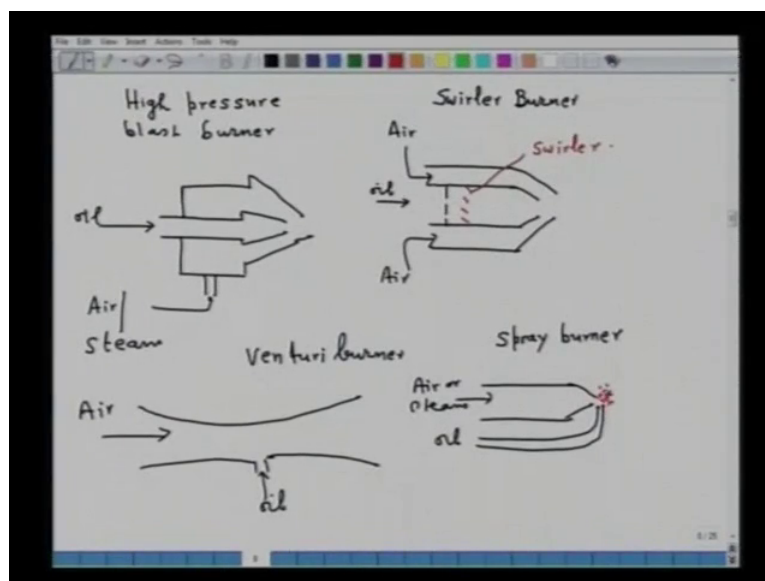 File Edit View Insert Actions Tools Help
High pressure
blast burner
oil
Air/
Steam
Swirler Burner
Air
oil
Swirler.
Air
Venturi burner
Air
oil
Spray burner
Air or
steam
oil